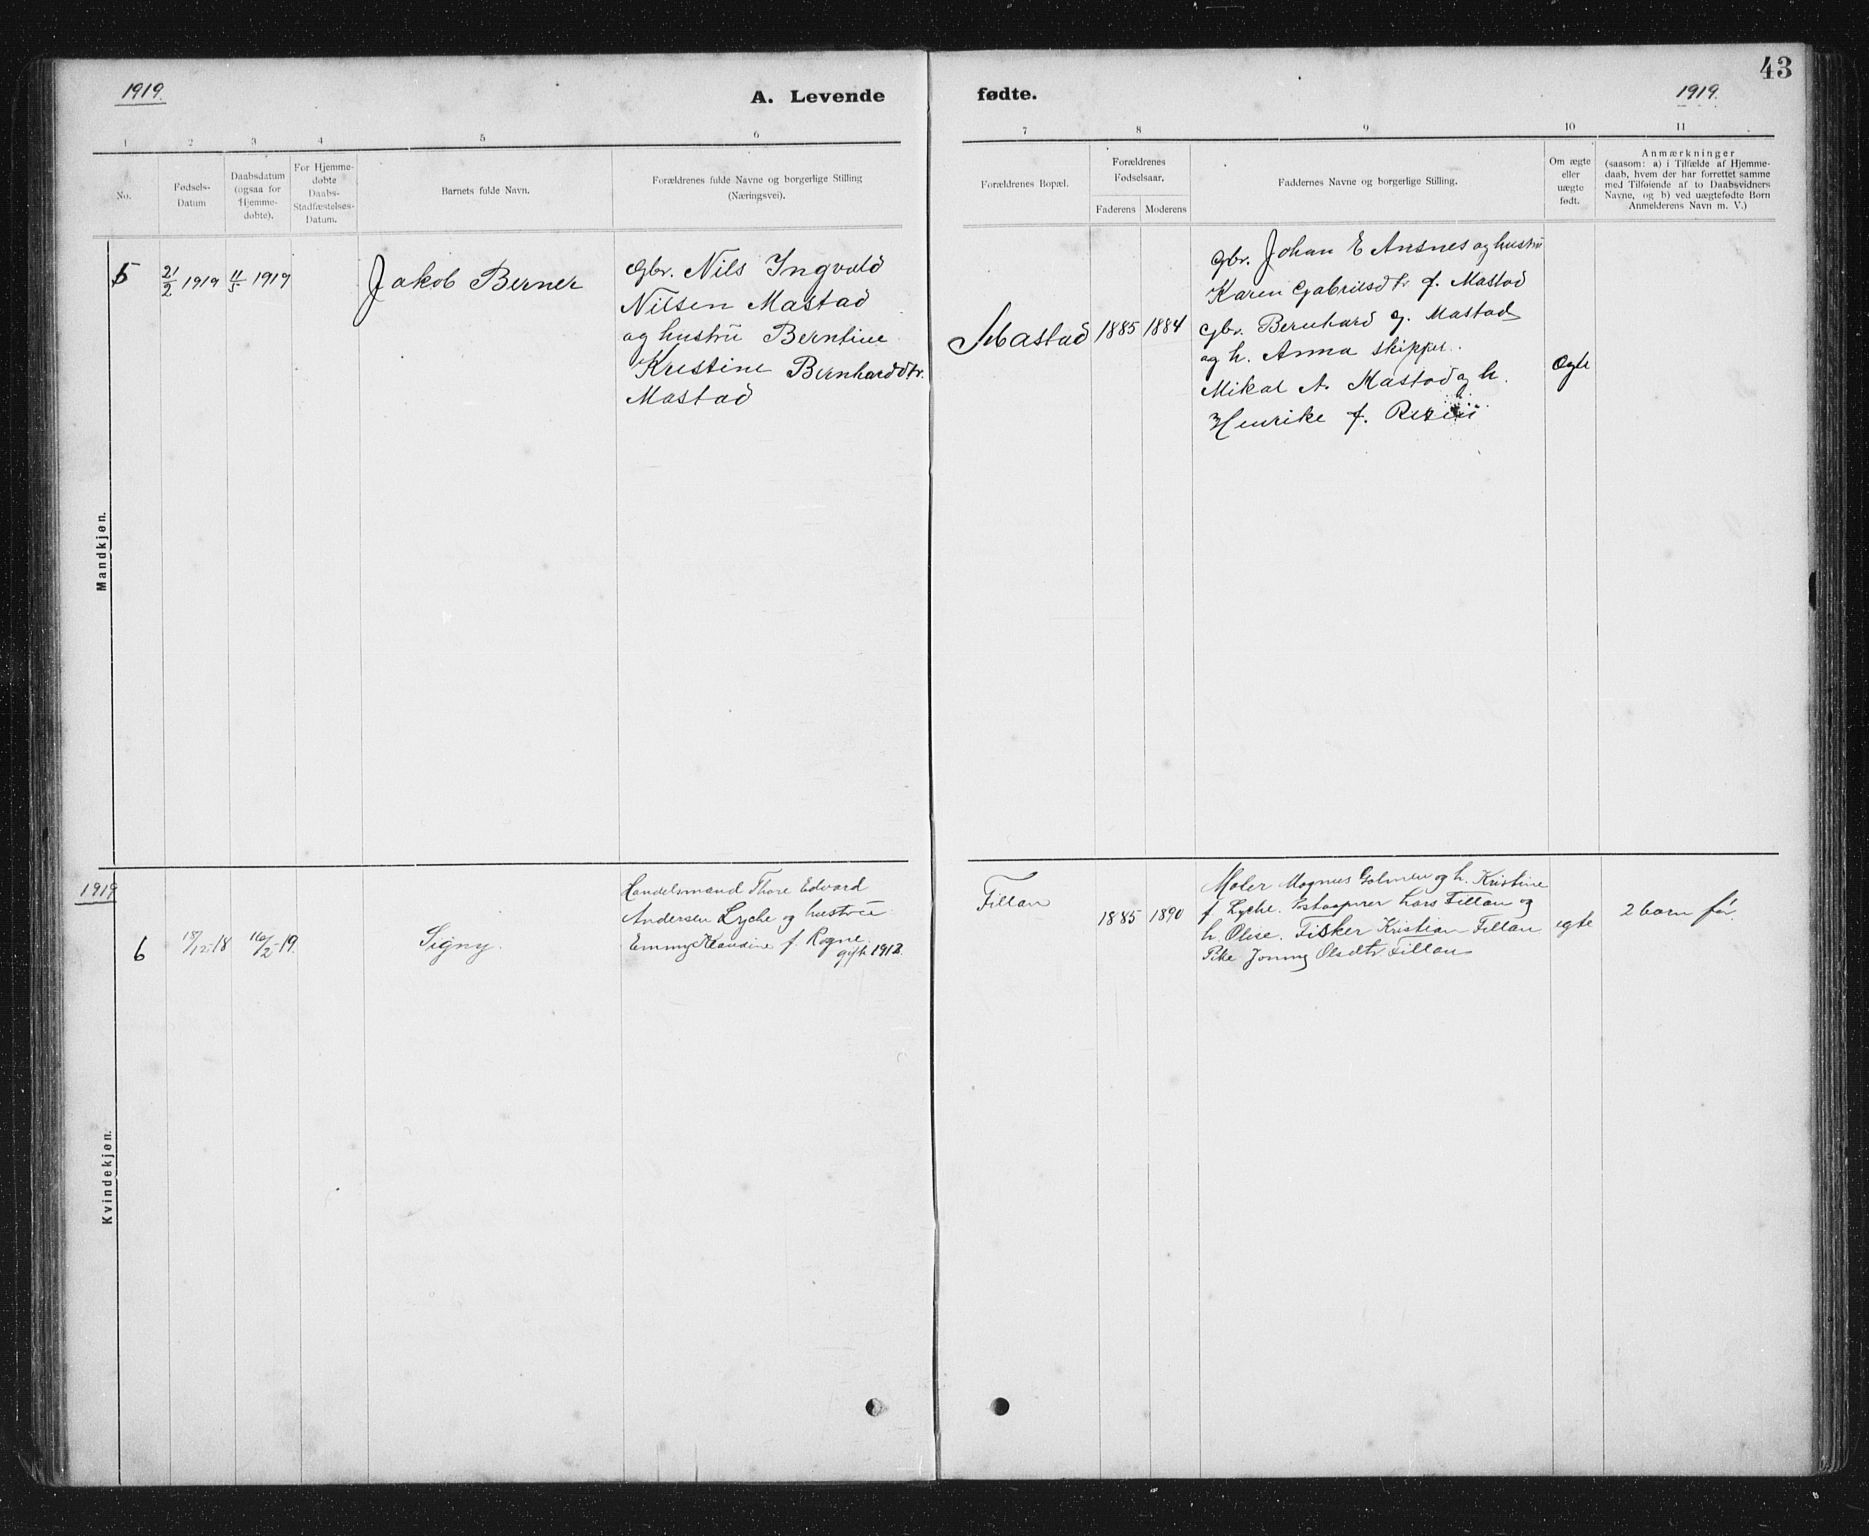 1919.
A. Levende
fødte.
1919.
43
1
2
3
4
5
6
7
8
9
10
11
No.
Fødsels-
Datum
Daabsdatum
(ogsaa for
Hjemme-
døbte).
For Hjemme-
døbte
Daabs-
Stadfæstelses-
Datum.
Barnets fulde Navn.
Forældrenes fulde Navne og borgerlige Stilling
(Næringsvei).
Forældrenes Bopæl.
Forældrenes
Fødselsaar.
Faderens
Moderens
Faddernes Navne og borgerlige Stilling.
Om ægte
eller
uægte
født.
Anmærkninger
(saasom: a) i Tilfælde af Hjemme-
daab, hvem der har forrettet samme
med Tilføiende af to Daabsvidners
Navne, og b) ved uægtefødte Børn
Anmelderens Navn m. V.)
Mandkjøn.
5
21/2 1919
11/5 1919
Jakob Berner
Gbr. Nils Ingvald
Nilsen Mastad
og hustru Berntine
Kristine Bernharddtr.
Mastad
Mastad
1885
1884
Gbr. Johan E Ansnes og hustru
Karen Gabrielsdtr f. Mastad
Gbr. Bernhard J. Mastad
og h. Anna Skipper.
Mikal A. Mastad og h.
Henrike f.
Ægte
Kvindekjøn.
1919
6
18/12-18
16/2-19
Signy.
Handelsmand Thore Edvard
Andersen Lyche og hustru
Emmy Klaudine f. Rogne
gift 1913.
Fillan
1885
1890
Maler Magnus Holmen og h. Kristine
f. Lyche. Lars Fillan og
h. Olise. Fisker Kristian Fillan
Pike Jenny Olsdtr Fillan
egte
2 barn før.